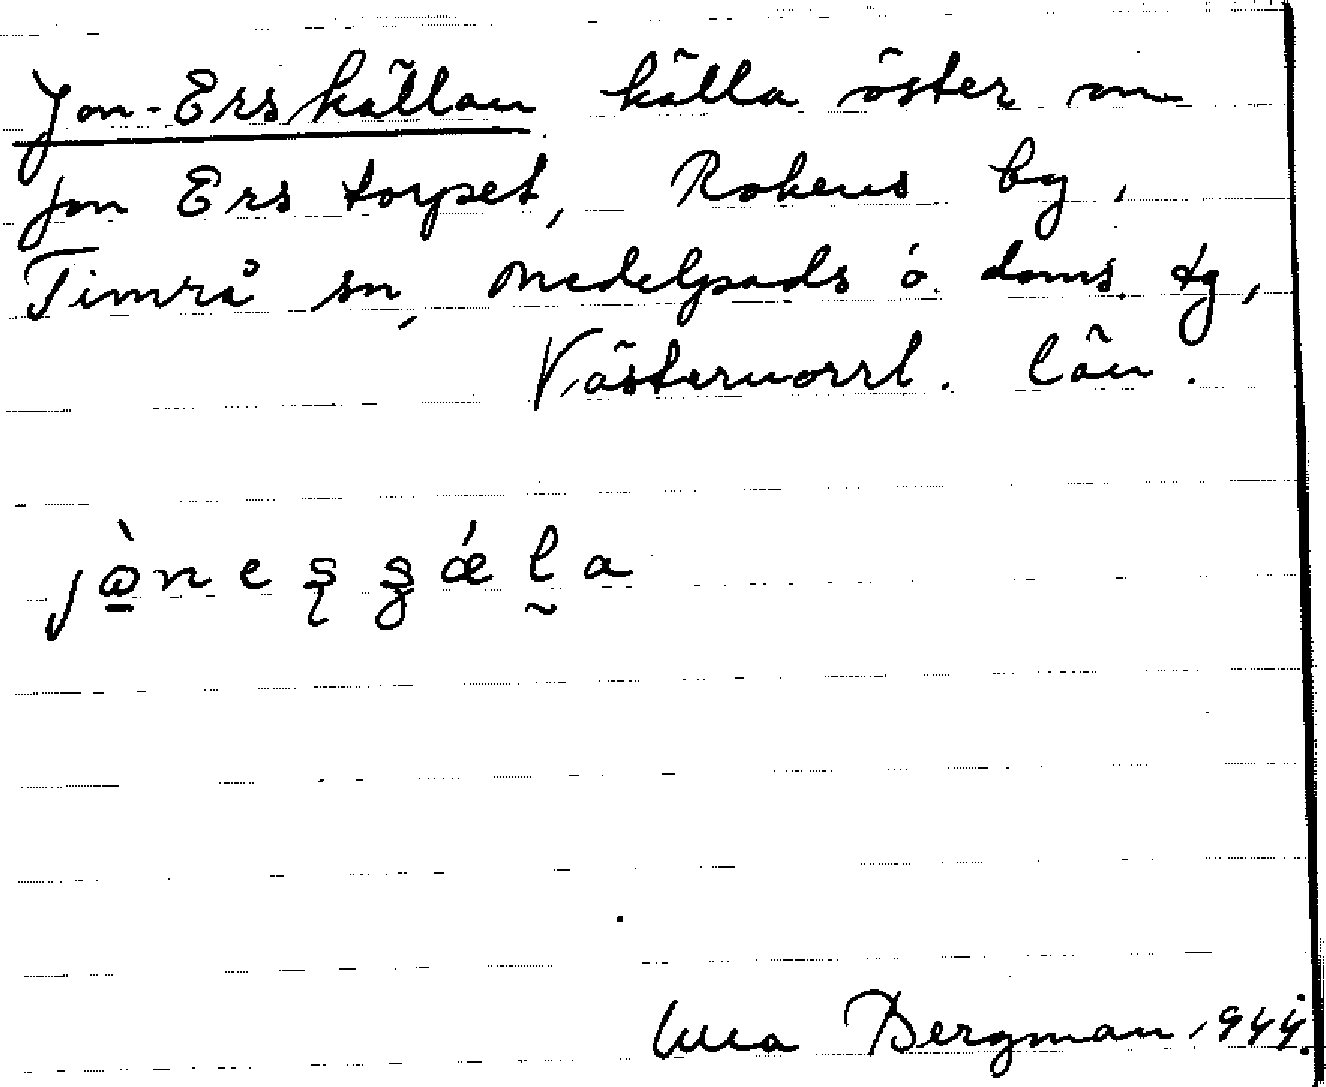 Jon-Erskällan källa öster om
Jon Ers torpet, Rokens by,
Timrå sn, Medelpads ö. doms. tg,
Västernorrl. län.
Bergman 1944.